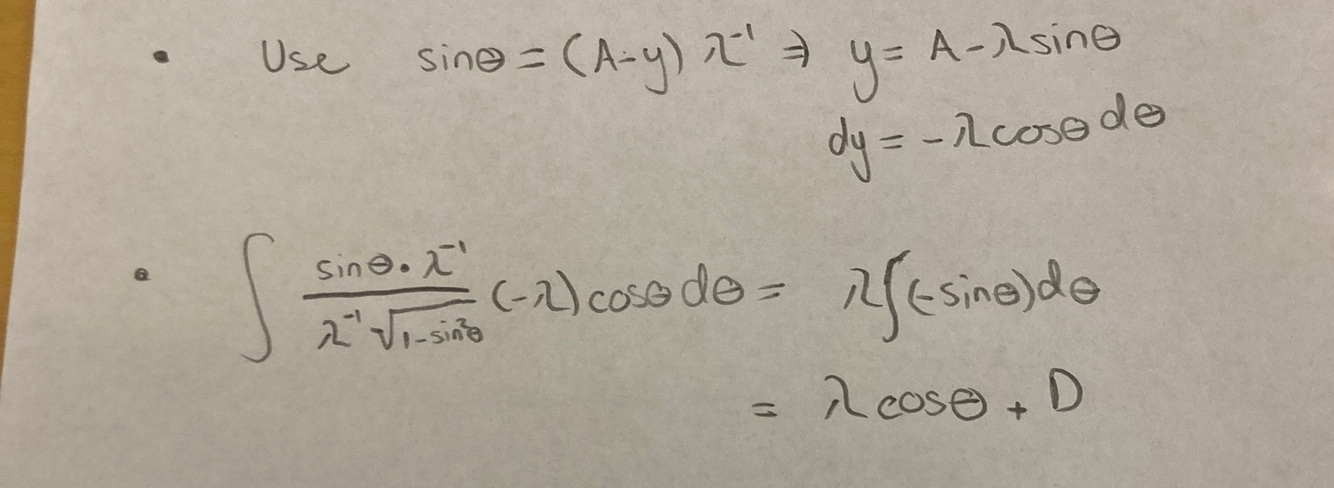 • Use sinθ = (A-y) λ⁻¹ ⇒ y = A - λsinθ
dy = -λcosθ dθ
• ∫ (sinθ · λ⁻¹)/(λ⁻¹ √(1-sin²θ)) (-λ) cosθ dθ = λ∫(-sinθ)dθ
= λcosθ + D